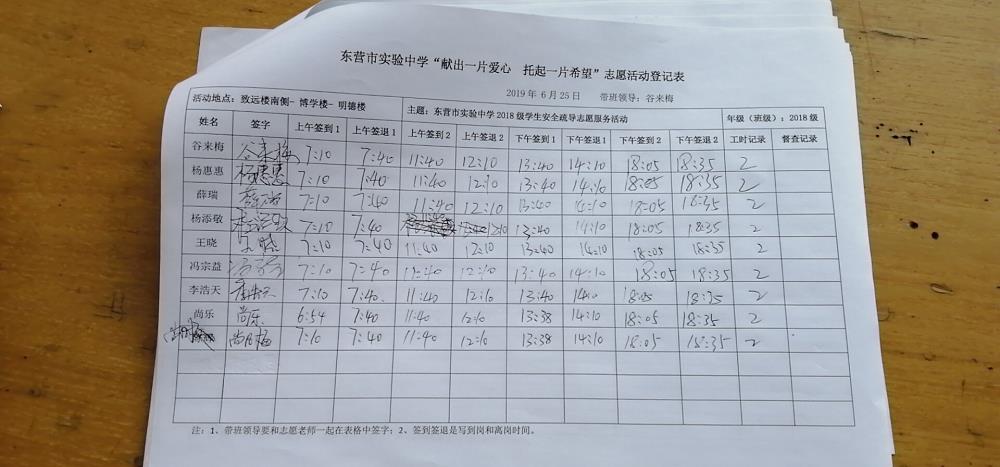 东营市实验中学“献出一片爱心 托起一片希望”志愿活动登记表
2019 年 6 月 25 日 带班领导：谷来梅
活动地点：致远楼南侧- 博学楼- 明德楼 主题：东营市实验中学 2018 级学生安全疏导志愿服务活动 年级（班级）：2018 级
姓名 签字 上午签到 1 上午签退 1 上午签到 2 上午签退 2 下午签到 1 下午签退 1 下午签到 2 下午签退 2 工时记录 督查记录
谷来梅 谷来梅 7:10 7:40 11:40 12:10 13:40 14:10 18:05 18:35 2
杨惠惠 杨惠惠 7:10 7:40 11:40 12:10 13:40 14:10 18:05 18:35 2
薛瑞 薛瑞 7:10 7:40 11:40 12:10 13:40 14:10 18:05 18:35 2
杨添敏 7:10 7:40 12:10 13:40 14:10 18:05 18:35 2
王晓 王晓 7:10 7:40 11:40 12:10 13:40 14:10 18:05 18:35 2
冯宗益 7:10 7:40 11:40 12:10 13:40 14:10 18:05 18:35 2
李浩天 7:10 7:40 11:40 12:10 13:40 14:10 18:05 18:35 2
尚乐 尚乐 6:54 7:40 11:40 12:10 13:38 14:10 18:05 18:35 2
7:10 7:40 11:40 12:10 13:38 14:10 18:05 18:35 2
注：1、带班领导要和志愿老师一起在表格中签字；2、签到签退是写到岗和离岗时间。